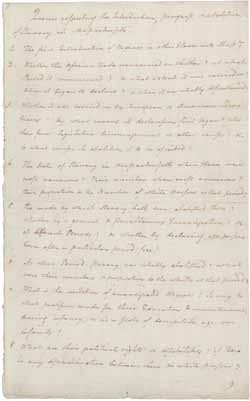 Queries respecting the Introduction, progress & abolition
of Slavery in Massachusetts.
1. The first Introduction of Negroes or other Slaves into Massts?
2. Whether the African trade was carried on thither? at what
Period it commenced? to what extent it was carried on
when it began to decline? & when it was wholly abandoned
3. Whether it was carried on by European or American Adven-
turers? to what causes its declension first began? whe-
ther from legislative discouragement or other causes? &
to what causes its abolition is to be ascribed?
4. The State of Slavery in Massachusetts when Slaves were
most numerous? Their number when most numerous?
their proportion to the Number of white Persons at that period?
5. The mode by which Slavery hath been abolished there?
whether by a general & simultaneous Emancipation? or
at different Periods? or whether by declaring all persons
born after a particular period free?
6. At what Period Slavery was wholly abolished? & what
were their numbers & proportion to the whites at that period?
7. What is the condition of emancipated Negroes? is any &
what provision made for their Education & maintenance
during infancy, or in a state of decrepitude, age or
infirmity?
8. What are their political rights or disabilities? if there
is any discrimination between them & white Persons?
9